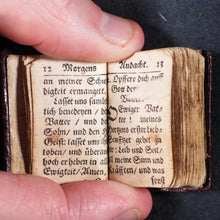 12 Morgens
an meiner Schul
digkeit ermangelt.
Lasset uns sämb
lich benedeyen / den
Vatter / und den
Sohn / und den H.
Geist: lasset uns ihn
loben / und überauß
hoch erheben in alle
Ewigkeit / Amen.
Andacht. 13
Opffere dich auff
Gott der
Vatter.
Ewiger Vat-
ter / meines
Hertzens erster Lieb-
Seuffzer gehet zu
Leib und Seel /
meine Sinn und
Kräfften / und was
sonst